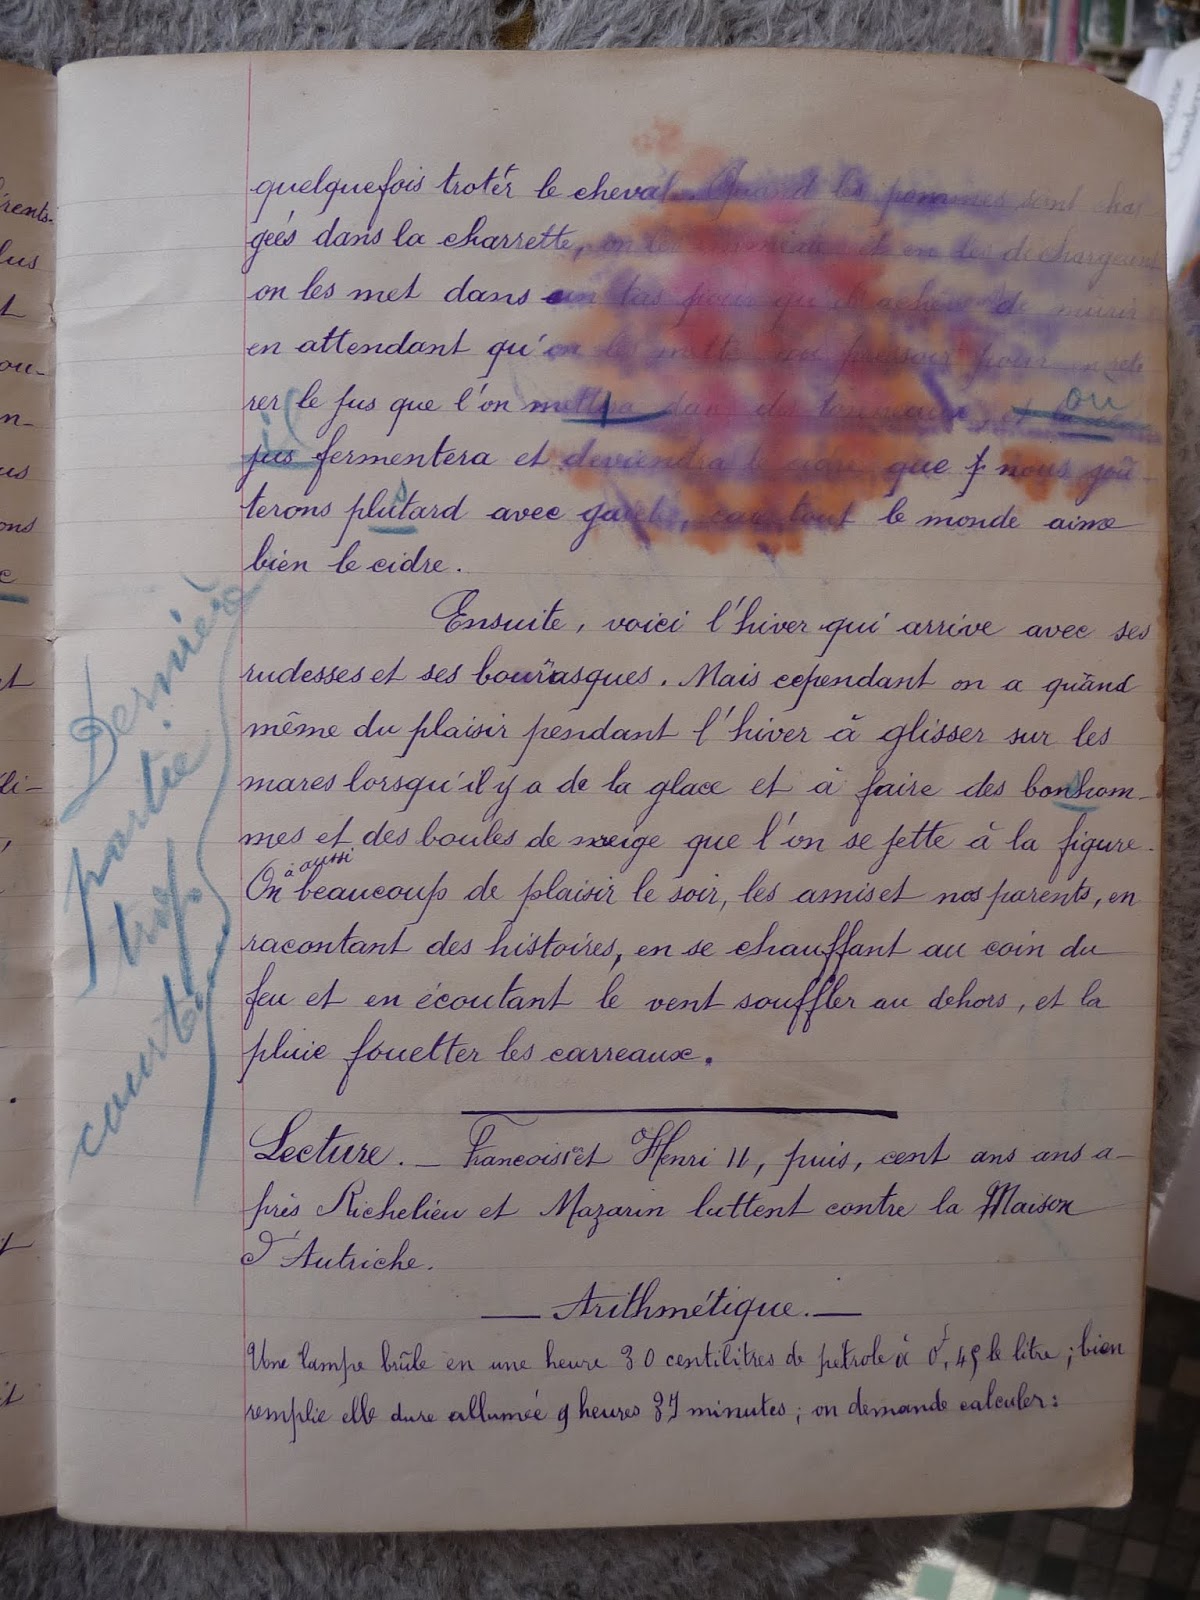 quelquefois trotér le cheval. Quand les pommes sont char
geés dans la charrette, on les emmène et en les déchargeant
on les met dans un tas pour qu'elles achèvent de murir
en attendant qu'on les mette au pressoir pour en reti
rer le jus que l'on mettra dans des tonneaux, et ou
jus fermentera et deviendra le cidre que nous goû
terons plutard avec gaieté, car tout le monde aime
bien le cidre.
Ensuite, voici l'hiver qui arrive avec ses
rudesses et ses bourrasques. Mais cependant on a quand
même du plaisir pendant l'hiver à glisser sur les
mares lorsqu'il y a de la glace et à faire des bonshom-
mes et des boules de neige que l'on se jette à la figure.
On à aussi beaucoup de plaisir le soir, les amis et nos parents, en
racontant des histoires, en se chauffant au coin du
feu et en écoutant le vent souffler au dehors, et la
pluie fouetter les carreaux.
Dernière
partie
trop
courte
Lecture. — Francois 1er et Henri II, puis, cent ans ans a-
près Richeliéu et Mazarin luttent contre la Maison
d'Autriche.
— Arithmétique. —
Une lampe brûle en une heure 30 centilitres de pétrole à 0f,45 le litre ; bien
remplie elle dure allumée 9 heures 37 minutes ; on demande calculer :